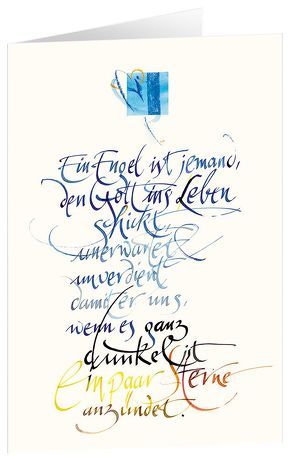 Ein Engel ist jemand,
den Gott ins Leben
schickt,
unerwartet
unverdient
damit er uns,
wenn es ganz
dunkel ist
ein paar Sterne
anzündet.